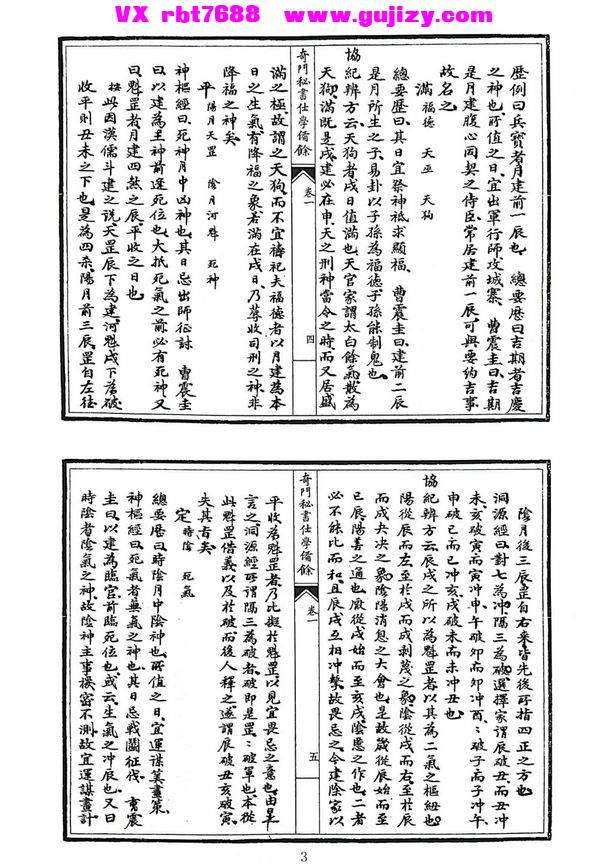 VX rbt7688 www.gujizy.com
歷例曰兵寶者月建前一辰也　總要歷曰吉期者吉慶
之神也所值之日宜出軍行師攻城寨　曹震圭曰吉期
是月建腹心同契之侍臣常居建前一辰可與要約吉事
故名之
滿　福德　天巫　天狗
總要歷曰其日宜祭神祗求顯福　曹震圭曰建前二辰
是月所生之子易卦以子孫為福德子孫能制鬼也
協紀辨方云天狗者戌日值滿也天官家謂太白餘氣散為
天狗滿既是戌建必在申天之刑神當令之時而又居盛
奇門秘書仕學備餘　卷一　四
滿之極故謂之天狗而不宜禱祀夫福德者以月建為本
日之生氣有降福之象若滿在戌日乃蓐收司刑之神非
降福之神矣
平　陽月天罡　陰月河魁　死神
神樞經曰死神月中凶神也其日忌出師征討　曹震圭
曰以建為主神前逢死位也大抵死氣之前必有死神又
曰魁罡者月建四煞之辰平收之日也
按此因漢儒斗建之說天罡辰下為建河魁戌下為破
收平則丑未之下也是為四煞陽月前三辰罡自左往
陰月後三辰罡自右來皆先後所指四正之方也
洞源經曰對七為沖隔三為破選擇家謂辰破丑而丑沖
未亥破寅而寅沖申午破卯而卯沖酉　破子而子沖午
申破巳而巳沖亥戌破未而未沖丑也
協紀辨方云辰戌之所以為魁罡者以其為二氣之樞紐也
陽從辰而左至於戌而成剝蔑之象陰從戌而右至於辰
而成夬決之象陰陽消息之大會也是故歲從辰始而至
巳辰陽善之通也厭從戌始而至亥戌陰慝之作也二者
必不能比而和且辰戌互相沖擊故畏忌之令建除家以
奇門秘書仕學備餘　卷一　五
平收為魁罡者乃比擬於魁罡以見宜畏忌之意也由是
言之洞源經所謂隔三為破者破即是罡　破軍也本從
此魁罡借義以及於破而後人釋之遂謂辰破丑亥破寅
失其旨矣
定　時陰　死氣
總要歷曰時陰月中陰神也所值之日宜運謀算畫策
神樞經曰死氣者無氣之神也其日忌戰鬭征伐　曹震
圭曰以建為臨官前臨死位也或云生氣之沖辰也又曰
時陰者陰氣之神故陰神主事機密不測故宜運謀畫計
3